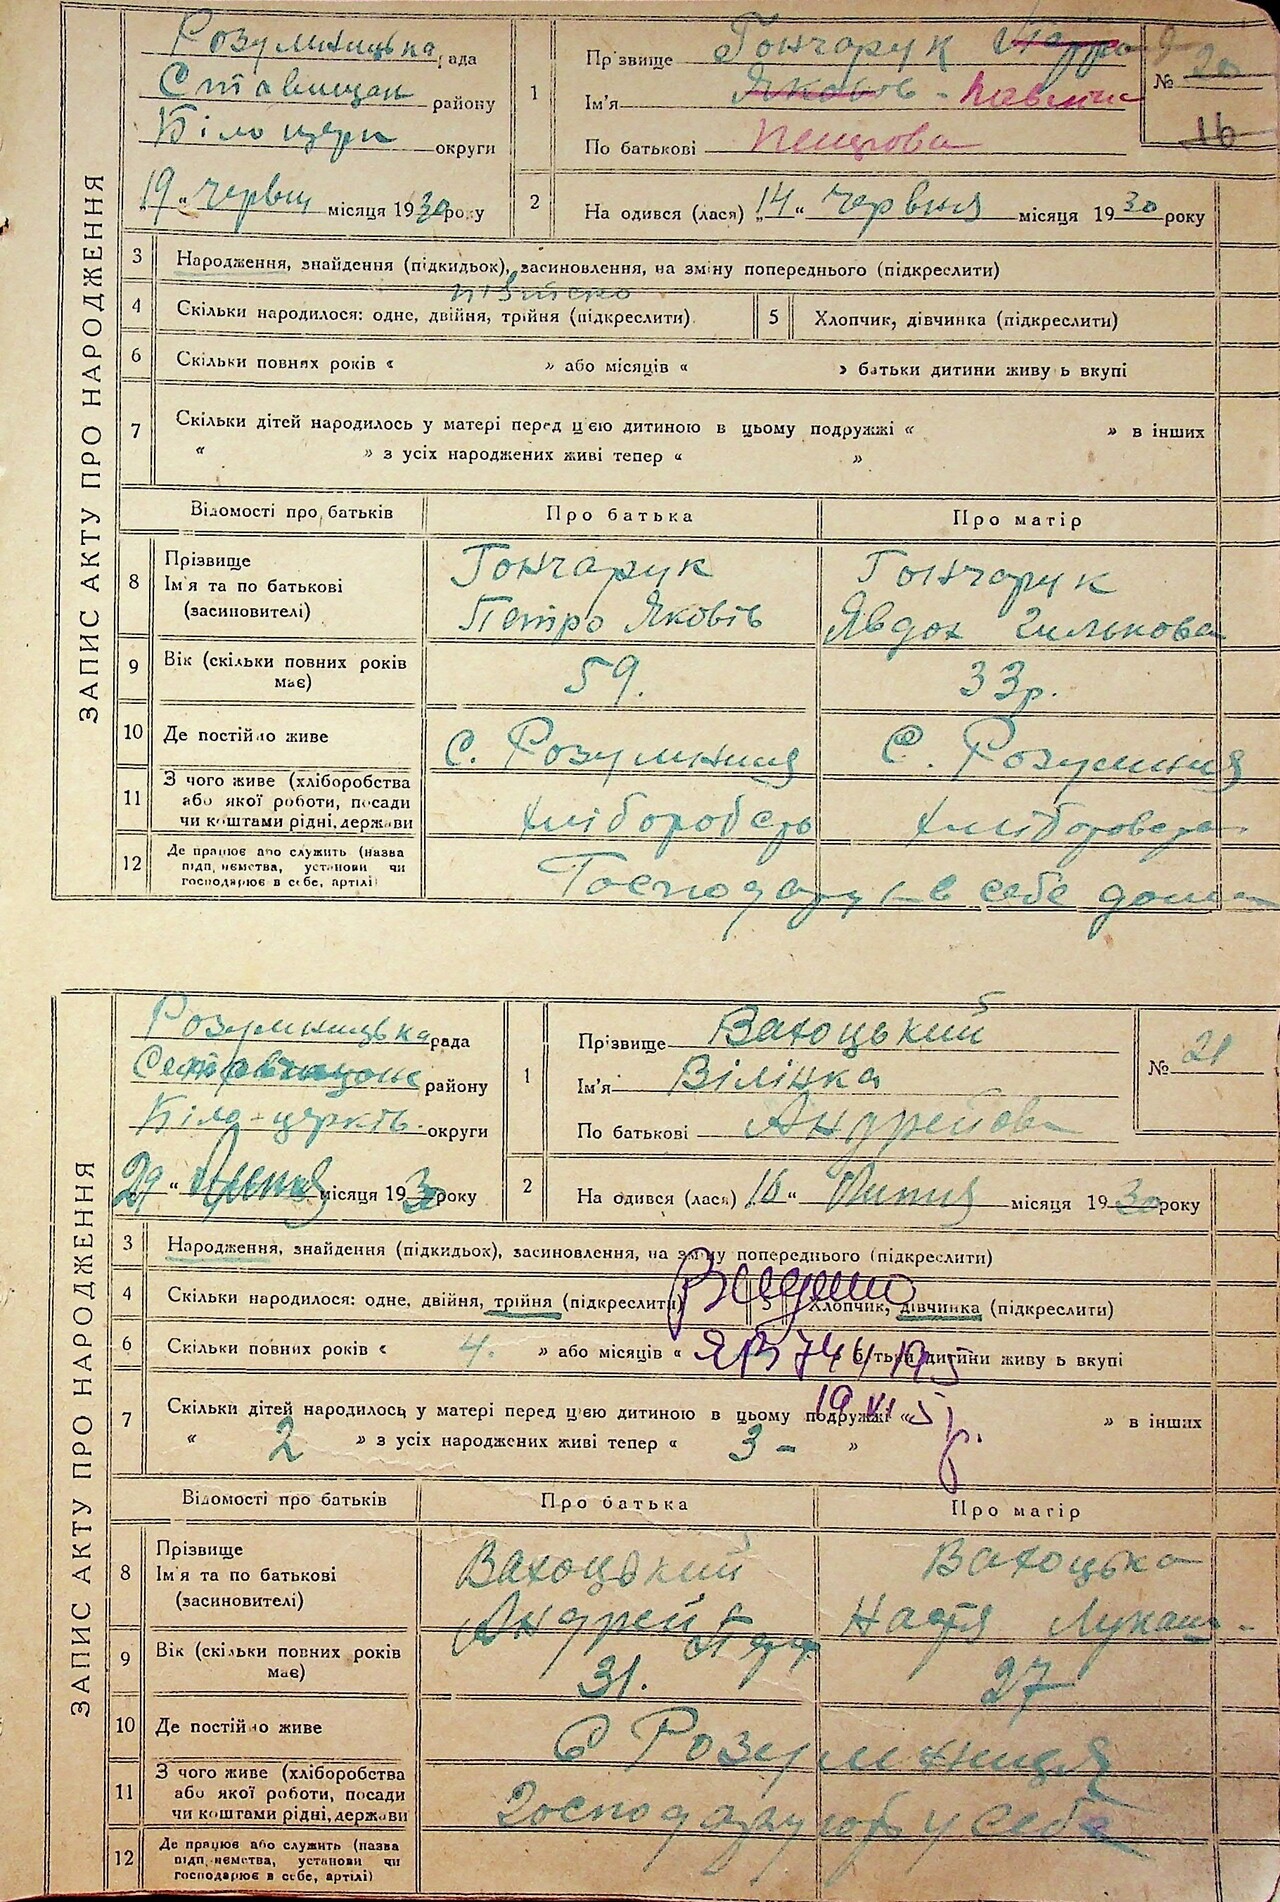 ЗАПИС АКТУ ПРО НАРОДЖЕННЯ
Розумницька рада
Ставищан району
Біло церк округи
19 „ червня місяця 1930 року
1 Прізвище Гончарук
Ім'я Яковів - Павлина
По батькові Петрова
№ 20
16
2 На одився (лася) „14 “ червня місяця 1930 року
3 Народження, знайдення (підкидьок), засиновлення, на зміну попереднього (підкреслити)
4 Скільки народилося: одне, двійня, трійня (підкреслити)
5 Хлопчик, дівчинка (підкреслити)
6 Скільки повних років « » або місяців « » батьки дитини живуть вкупі
7 Скільки дітей народилось у матері перед цією дитиною в цьому подружжі « » в інших
« » з усіх народжених живі тепер « »
Відомості про батьків Про батька Про матір
8 Прізвище Ім'я та по батькові (засновителі)
Гончарук Гончарук
Петро Яковів Явдох Гилькова
9 Вік (скільки повних років має) 59. 33р.
10 Де постійно живе с. Розумниця С. Розумниця
11 З чого живе (хліборобства або якої роботи, посади чи коштами рідні, держави
хлібороб
12 Де працює або служить (назва підприємства, установи чи господарює в себе, артілі)
в себе дома
ЗАПИС АКТУ ПРО НАРОДЖЕННЯ
Розумницька рада
району
Біло-церків. округи
29 „ Липня місяця 1930 року
1 Прізвище Вахоцький
Ім'я Вілінка
По батькові Андрейова
№ 21
2 На одився (лася) „16 “ Липня місяця 1930 року
3 Народження, знайдення (підкидьок), засиновлення, на зміну попереднього (підкреслити)
4 Скільки народилося: одне, двійня, трійня (підкреслити)
5 Хлопчик, дівчинка (підкреслити)
Видано
6 Скільки повних років « 4. » або місяців « батьки дитини живуть вкупі
7 Скільки дітей народилось у матері перед цією дитиною в цьому подружжі « » в інших
« 2 » з усіх народжених живі тепер « 3 - »
Відомості про батьків Про батька Про матір
8 Прізвище Ім'я та по батькові (засиновителі)
Вахоцький Вахоцька
Андрей Настя Лукаш-
9 Вік (скільки повних років має) 31. 27
10 Де постійно живе с Розумниця
11 З чого живе (хліборобства або якої роботи, посади чи коштами рідні, держави
Господарують у себе
12 Де працює або служить (назва підприємства, установи чи господарює в себе, артілі)